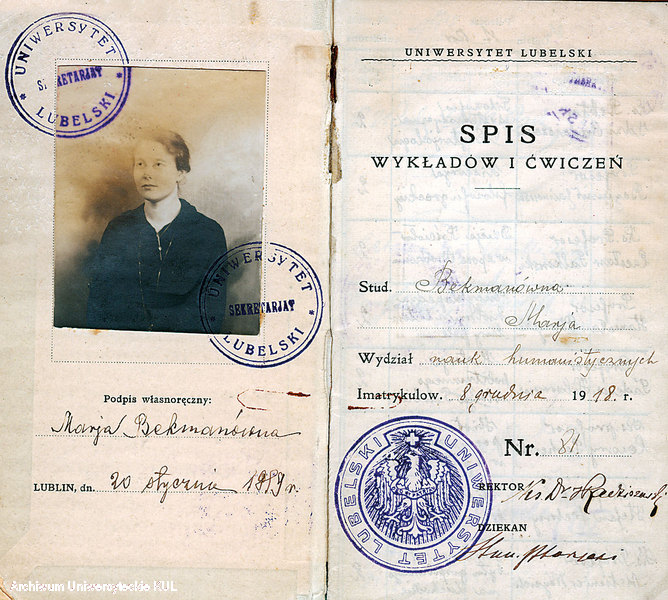 UNIWERSYTET LUBELSKI
SEKRETARJAT
UNIWERSYTET LUBELSKI
SEKRETARJAT
Podpis własnoręczny:
Marja Bekmanówna
LUBLIN, dn. 20 stycznia 1919 r.
Archiwum Uniwersyteckie KUL
UNIWERSYTET LUBELSKI
SPIS
WYKŁADÓW I ĆWICZEŃ
Stud. Bekmanówna
Marja
Wydział nauk humanistycznych
Imatrykulow. 8 grudnia 1918 r.
Nr. 81.
UNIWERSYTET LUBELSKI
REKTOR Ks Dr
DZIEKAN